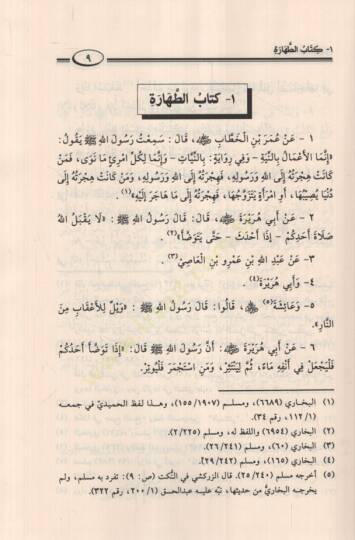 ١- كِتَابُ الطَّهَارَةِ
٩
١- كتابُ الطَّهَارَةِ
١ - عَنْ عُمَرَ بْنِ الْخَطَّابِ ﷺ، قَالَ: سَمِعْتُ رَسُولَ اللهِ ﷺ يَقُولُ:
«إِنَّمَا الأَعْمَالُ بِالنِّيَّةِ - وَفِي رِوَايَةٍ: بِالنِّيَّاتِ - وَإِنَّمَا لِكُلِّ امْرِئٍ مَا نَوَى، فَمَنْ
كَانَتْ هِجْرَتُهُ إِلَى اللهِ وَرَسُولِهِ، فَهِجْرَتُهُ إِلَى اللهِ وَرَسُولِهِ، وَمَنْ كَانَتْ هِجْرَتُهُ إِلَى
دُنْيَا يُصِيبُهَا، أَوِ امْرَأَةٍ يَتَزَوَّجُهَا، فَهِجْرَتُهُ إِلَى مَا هَاجَرَ إِلَيْهِ»(١).
٢ - عَنْ أَبِي هُرَيْرَةَ، قَالَ: قَالَ رَسُولُ اللهِ ﷺ: «لَا يَقْبَلُ اللهُ
صَلَاةَ أَحَدِكُمْ - إِذَا أَحْدَثَ - حَتَّى يَتَوَضَّأَ»(٢).
٣- عَنْ عَبْدِ اللهِ بْنِ عَمْرِو بْنِ الْعَاصِيْ(٣).
٤- وَأَبِي هُرَيْرَةَ(٤).
٥- وَعَائِشَةَ(٥)، قَالُوا: قَالَ رَسُولُ اللهِ ﷺ: «وَيْلٌ لِلأَعْقَابِ مِنَ
النَّارِ».
٦ - عَنْ أَبِي هُرَيْرَةَ: أَنَّ رَسُولَ اللهِ ﷺ قَالَ: «إِذَا تَوَضَّأَ أَحَدُكُمْ
فَلْيَجْعَلْ فِي أَنْفِهِ مَاءً، ثُمَّ لِيَنْتَثِرْ، وَمَنِ اسْتَجْمَرَ فَلْيُوتِرْ.
(١) البخاري (٦٦٨٩)، ومسلم (١٥٥/١٩٠٧)، وهذا لفظ الحميديّ في جمعه
١١٢/١، رقم ٣٤).
(٢) البخاري (٦٩٥٤) واللفظ له، ومسلم (٢/٢٢٥).
(٣) البخاري (٦٠)، ومسلم (٢٦/٢٤١).
(٤) البخاري (١٦٥)، ومسلم (٢٩/٢٤٢).
(٥) أخرجه مسلم (٢٥/٢٤٠). قال الزركشي في النُّكت (ص: ٩): تفرد به مسلم، ولم
يخرجه البخاريُّ من حديثها، نبّه عليه عبدالحق (٢٠٠/١، رقم ٣٢٢).